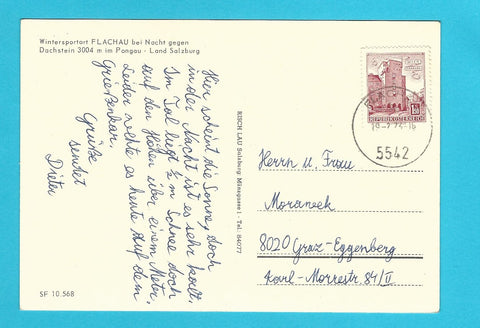 Wintersportort FLACHAU bei Nacht gegen
Dachstein 3004 m im Pongau - Land Salzburg
Hier scheint die Sonne, doch
in der Nacht ist es sehr kalt.
Im Tal liegt ½ m Schnee doch
auf den Höhen über einem Meter,
Leider wehte es heute auf dem
Grießenkar.
Grüße
sendet
Dieter
SF 10 568
ERICH LAU Salzburg Münzgasse 1 - Tel. 84077
REPUBLIK ÖSTERREICH
5542
Herrn u. Frau
8020 Graz-Eggenberg
Karl-Morrestr 84/II